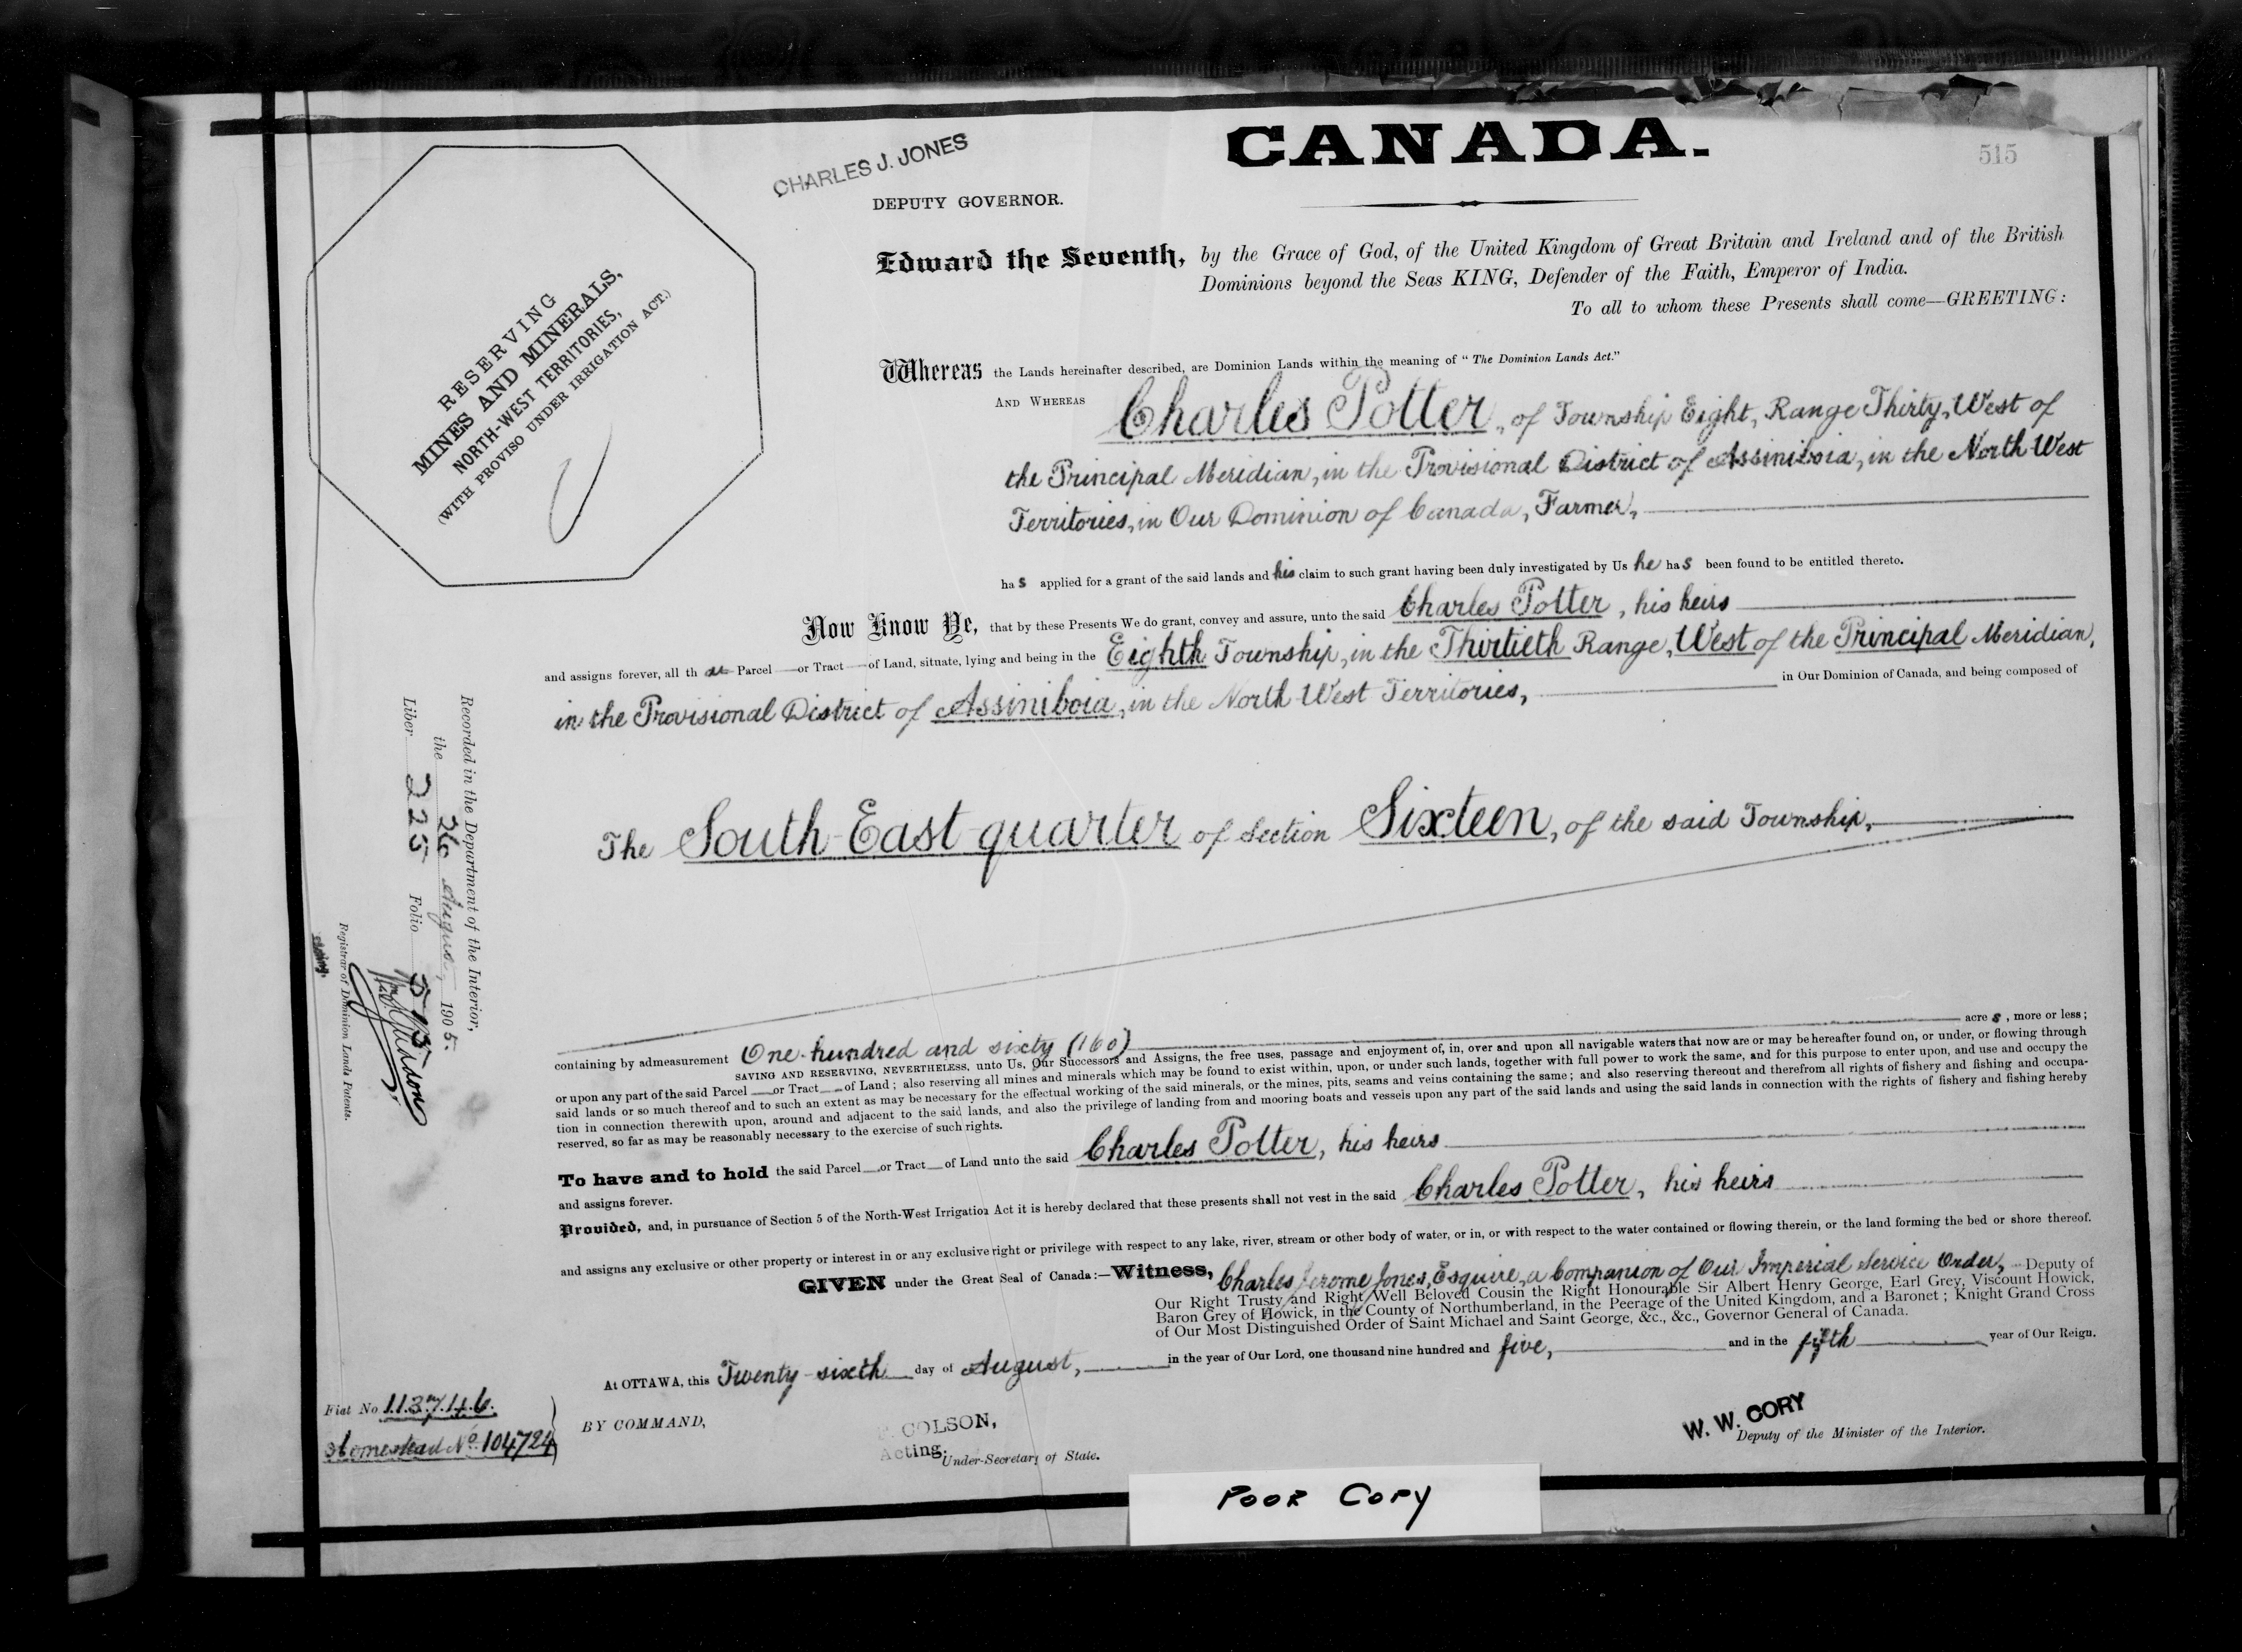 CANADA.
515
CHARLES J. JONES
DEPUTY GOVERNOR.
RESERVING
MINES AND MINERALS,
NORTH-WEST TERRITORIES,
(WITH PROVISO UNDER IRRIGATION ACT.)
Edward the Seventh, by the Grace of God, of the United Kingdom of Great Britain and Ireland and of the British
Dominions beyond the Seas KING, Defender of the Faith, Emperor of India.
To all to whom these Presents shall come—GREETING:
Whereas the Lands hereinafter described, are Dominion Lands within the meaning of "The Dominion Lands Act."
AND WHEREAS Charles Potter, of Township Eight, Range Thirty, West of
the Principal Meridian, in the Provisional District of Assiniboia, in the North West
Territories, in Our Dominion of Canada, Farmer,
has applied for a grant of the said lands and his claim to such grant having been duly investigated by Us he has been found to be entitled thereto.
Now Know Ye, that by these Presents We do grant, convey and assure, unto the said Charles Potter, his heirs
and assigns forever, all that Parcel or Tract of Land, situate, lying and being in the Eighth Township, in the Thirtieth Range, West of the Principal Meridian,
in the Provisional District of Assiniboia, in the North West Territories, in Our Dominion of Canada, and being composed of
The South-East quarter of Section Sixteen, of the said Township,
containing by admeasurement One hundred and sixty (160) acres, more or less;
SAVING AND RESERVING, NEVERTHELESS, unto Us, Our Successors and Assigns, the free uses, passage and enjoyment of, in, over and upon all navigable waters that now are or may be hereafter found on, or under, or flowing through
or upon any part of the said Parcel or Tract of Land; also reserving all mines and minerals which may be found to exist within, upon, or under such lands, together with full power to work the same, and for this purpose to enter upon, and use and occupy the
said lands or so much thereof and to such an extent as may be necessary for the effectual working of the said minerals, or the mines, pits, seams and veins containing the same; and also reserving thereout and therefrom all rights of fishery and fishing and occupa-
tion in connection therewith upon, around and adjacent to the said lands, and also the privilege of landing from and mooring boats and vessels upon any part of the said lands and using the said lands in connection with the rights of fishery and fishing hereby
reserved, so far as may be reasonably necessary to the exercise of such rights.
To have and to hold the said Parcel or Tract of Land unto the said Charles Potter, his heirs
and assigns forever.
Provided, and, in pursuance of Section 5 of the North-West Irrigation Act it is hereby declared that these presents shall not vest in the said Charles Potter, his heirs
and assigns any exclusive or other property or interest in or any exclusive right or privilege with respect to any lake, river, stream or other body of water, or in, or with respect to the water contained or flowing therein, or the land forming the bed or shore thereof.
GIVEN under the Great Seal of Canada:—Witness, Charles Jerome Jones, Esquire, a Companion of Our Imperial Service Order, Deputy of
Our Right Trusty and Right Well Beloved Cousin the Right Honourable Sir Albert Henry George, Earl Grey, Viscount Howick,
Baron Grey of Howick, in the County of Northumberland, in the Peerage of the United Kingdom, and a Baronet; Knight Grand Cross
of Our Most Distinguished Order of Saint Michael and Saint George, &c., &c., Governor General of Canada.
At OTTAWA, this Twenty-sixth day of August, in the year of Our Lord, one thousand nine hundred and five, and in the fifth year of Our Reign.
BY COMMAND,
COLSON,
Acting. Under-Secretary of State.
W. W. CORY
Deputy of the Minister of the Interior.
Recorded in the Department of the Interior,
the 26 August, 1905.
Liber 225 Folio 515
Registrar of Dominion Lands Patents.
Fiat No 113746.
Homestead No. 104724
POOR COPY